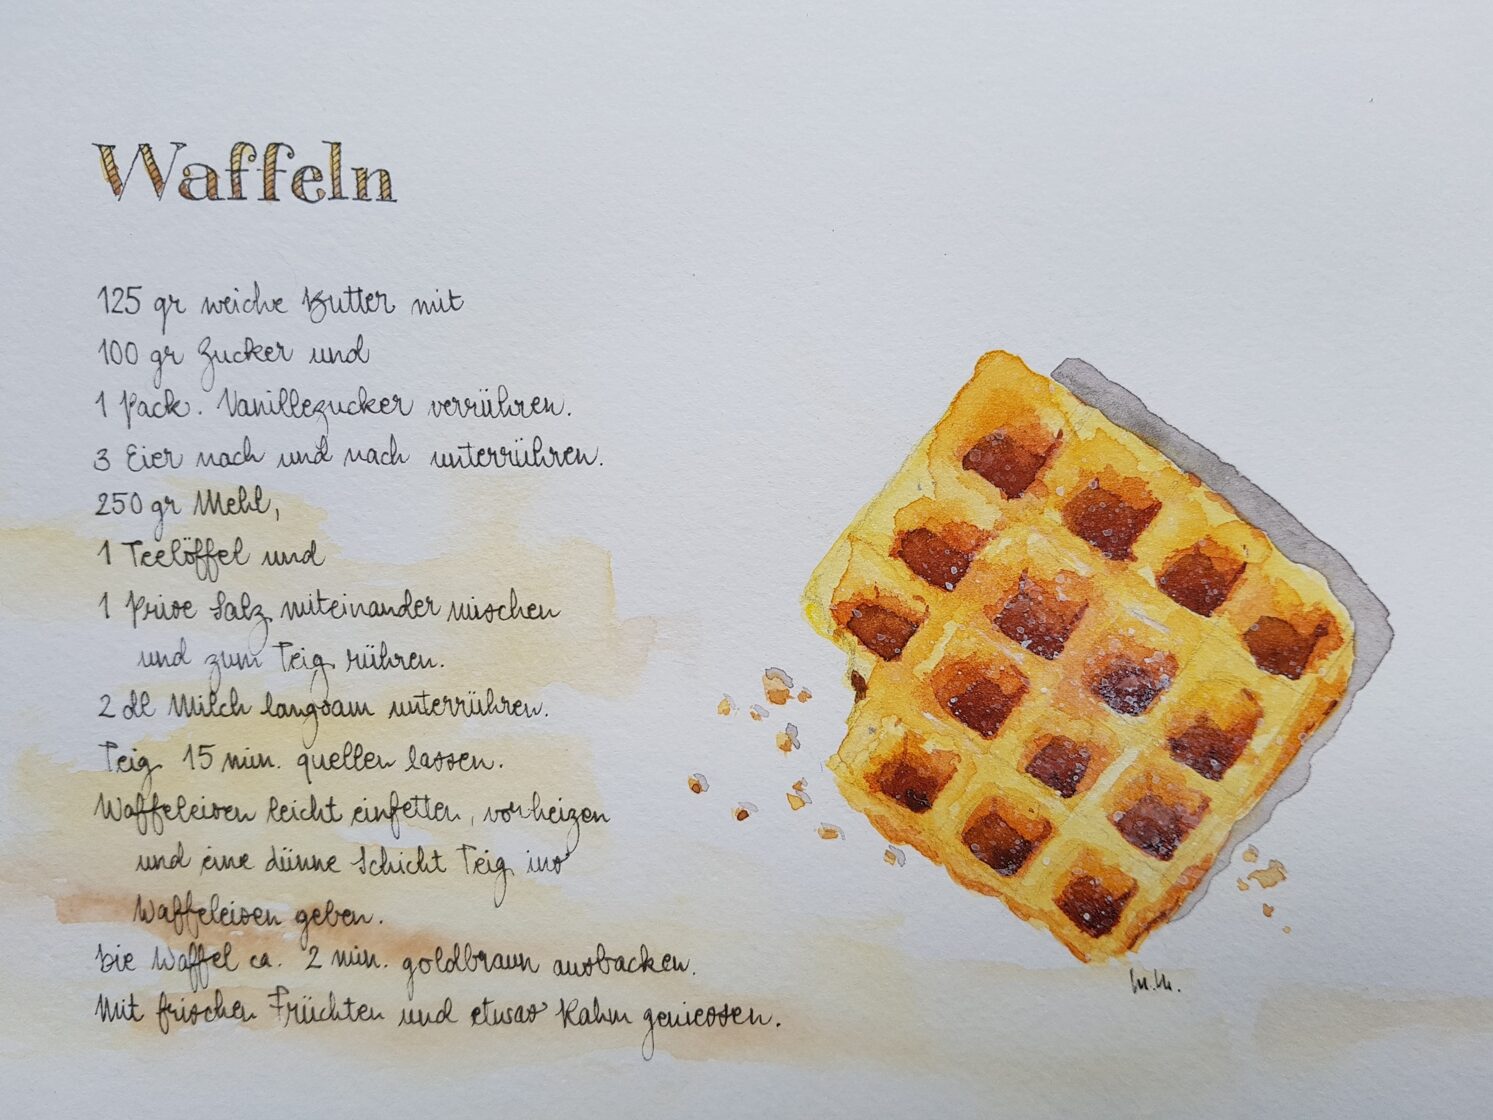 Waffeln
125 gr weiche Butter mit
100 gr Zucker und
1 Pack. Vanillezucker verrühren.
3 Eier nach und nach unterrühren.
250 gr Mehl,
1 Teelöffel und
1 Prise Salz miteinander mischen
und zum Teig rühren.
2 dl Milch langsam unterrühren.
Teig 15 min. quellen lassen.
Waffeleisen leicht einfetten, vorheizen
und eine dünne Schicht Teig ins
Waffeleisen geben.
Die Waffel ca. 2 min. goldbraun ausbacken.
Mit frischen Früchten und etwas Rahm geniessen.
M.M.